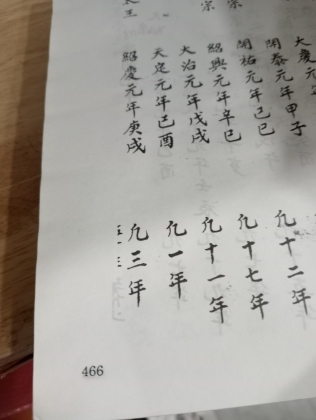 大慶元
開泰元年甲子
宗 開祐元年己巳 凢十二年
宗 紹豐元年辛巳 凢十七年
大治元年戊戌 凢十一年
大定元年己酉 凢一年
王 紹慶元年庚戌 凢三年
466